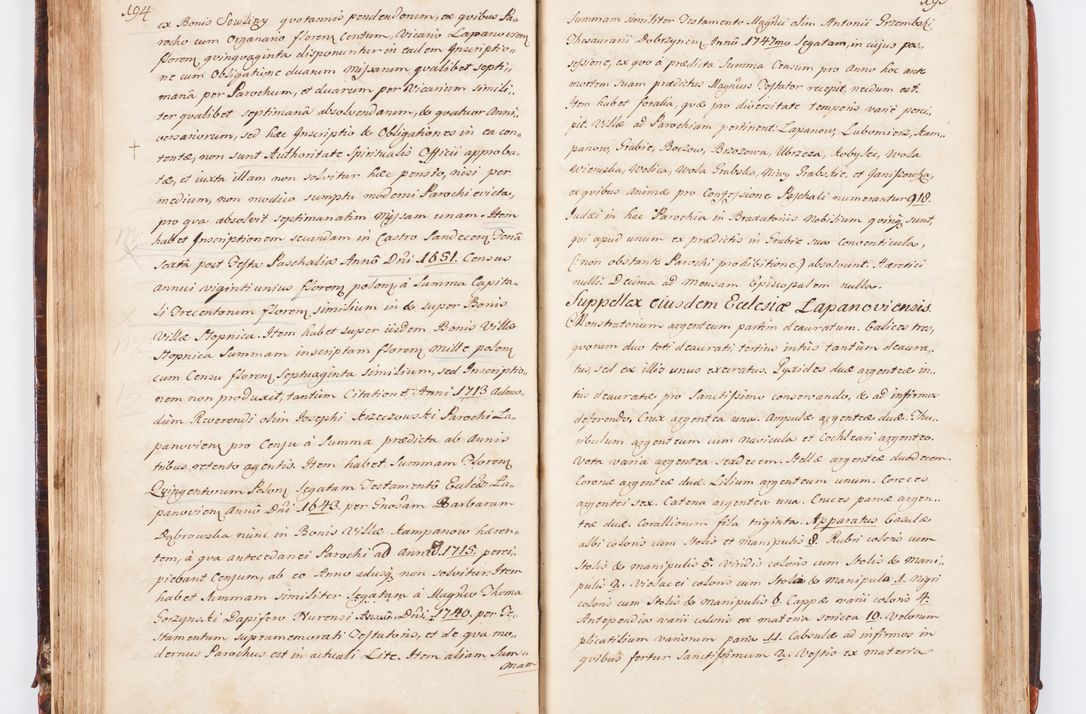 194
ex Bonis Sowliny quotannis pendendorum, ex quibus Pa„
rocho cum Organario floren Centum, Vicario Lapanovien
floren quinquaginta disponuntur in eadem Inscriptio„
ne cum Obligatione duarum Missarum qualibet septi„
manâ per Parochum, et duarum per Vicarium simili„
ter qualibet septimanâ absolvendarum, & quatuor Anni„
versariorum, sed hæc Inscriptio & Obligationes in ea con„
tentæ, non sunt Authoritate Spiritualis Officii approba„
tæ, et iuxta illam non solvitur hæc pensio, nisi per
medium, non modico sumptu moderni Parochi evicta,
pro qua absolvit septimanatim Missam unam. Item
habet Inscriptionem secundam in Castro Sandecen Feriâ
sextâ post Festa Paschalia Annô Dni 1651. Census
annui viginti unius floren polon à Summa Capita„
li Trecentorum floren similium in & super Bonis
Villæ Stopnica. Item habet super iisdem Bonis Villæ
Stopnica Summam inscriptam floren mille polon
cum Censu floren Septuaginta similium, sed Inscriptio„
nem non produxit, tantum Citatione Anni 1713 Admo„
dùm Reverendi olim Josephi Strzeczowski Parochi La„
panovien pro Censu à Summa prædicta ab Annis
tribus retento agentis. Item habet Summam Floren
Quingentorum Polon legatam Testamentô Ecclæ La„
panovien Annô Dni 1643. per Gnosam Barbaram
Dąbrowska nunc in Bonis Villæ Kampanow hæren„
tem, à qua antecedanei Parochi ad Annũ 1715. perci„
piebant Censum, ab eo Anno adusq non solvitur. Item
habet Summam similiter legatam à Magnco Thoma
Gorzynski Dapifero Nurensi Annô Dni 1740. per Te„
stamentum supramemorati Testatoris, et de qua mo„
dernus Parochus est in actuali Lite. Item aliam Sum„
mam
195
Summam similiter Testamento Magnci olim Antonii Przemboki
Thesaurarii Dobrzynen, Annô 1747mo legatam, in cujus pos„
sessione, ex quo à prædicta Summa Censum pro Anno hoc ante
mortem suam prædictus Magnificus Testator recepit, necdum est.
Item habet foralia, quæ pro diversitate temporis varie perci„
pit. Villæ ad Parochiam pertinent: Lapanow, Lubomierz, Kam„
panow, Grabie, Boczow, Brzozowa, Ubrzeza, Kobylec, Wola
Wieruska, Wolica, Wola Grabska, Niwy Grabskie, et Janisowka,
ex quibus animæ pro Confessione Paschali numerantur 918.
Judæi in hac Parochia in Braxatoriis Nobilium quinq sunt,
qui apud unum ex prædictis in Grabie sua Conventicula,
(: non obstante Parochi prohibitione :) absolvunt. Hæretici
nulli. Decima ad Mensam Episcopalem nulla.
Suppellex eiusdem Ecclesiæ Lapanoviensis.
Monstratorium argenteum partim deauratum. Calices tres,
quorum duo toti deaurati, tertius intùs tantùm deaura„
tus, sed ex illis unus execratus. Pyxides duæ argenteæ in„
tùs deauratæ pro Sanctissimo conservando, & ad infirmos
deferendo. Crux argentea una. Ampulæ argenteæ duæ. Thu„
ribulum argenteum cum Navicula et Cochleari argenteo.
Vota varia argentea sexdecem. Stellæ argenteæ duodecem.
Coronæ argenteæ duæ. Lilium argenteum unum. Coreces
argentei sex. Catena argentea una. Cruces parvæ argen„
teæ duæ. Corallorum fila triginta. Apparatus Casulæ
albi coloris cum stolis et Manipulis 8. Rubri coloris cum
stolis & manipulis 5. Viridis coloris cum Stolis & Mani„
pulis 2. Violacei coloris cum Stola & manipula 1. Nigri
coloris cum Stolis & manipulis 6. Cappæ varii coloris 4.
Antependia varii coloris ex materia sericea 10. Velorum
plicatilium variorum paria 11. Capsulæ ad infirmos in
quibus fertur Sanctissimum 2. Vestis ex materia